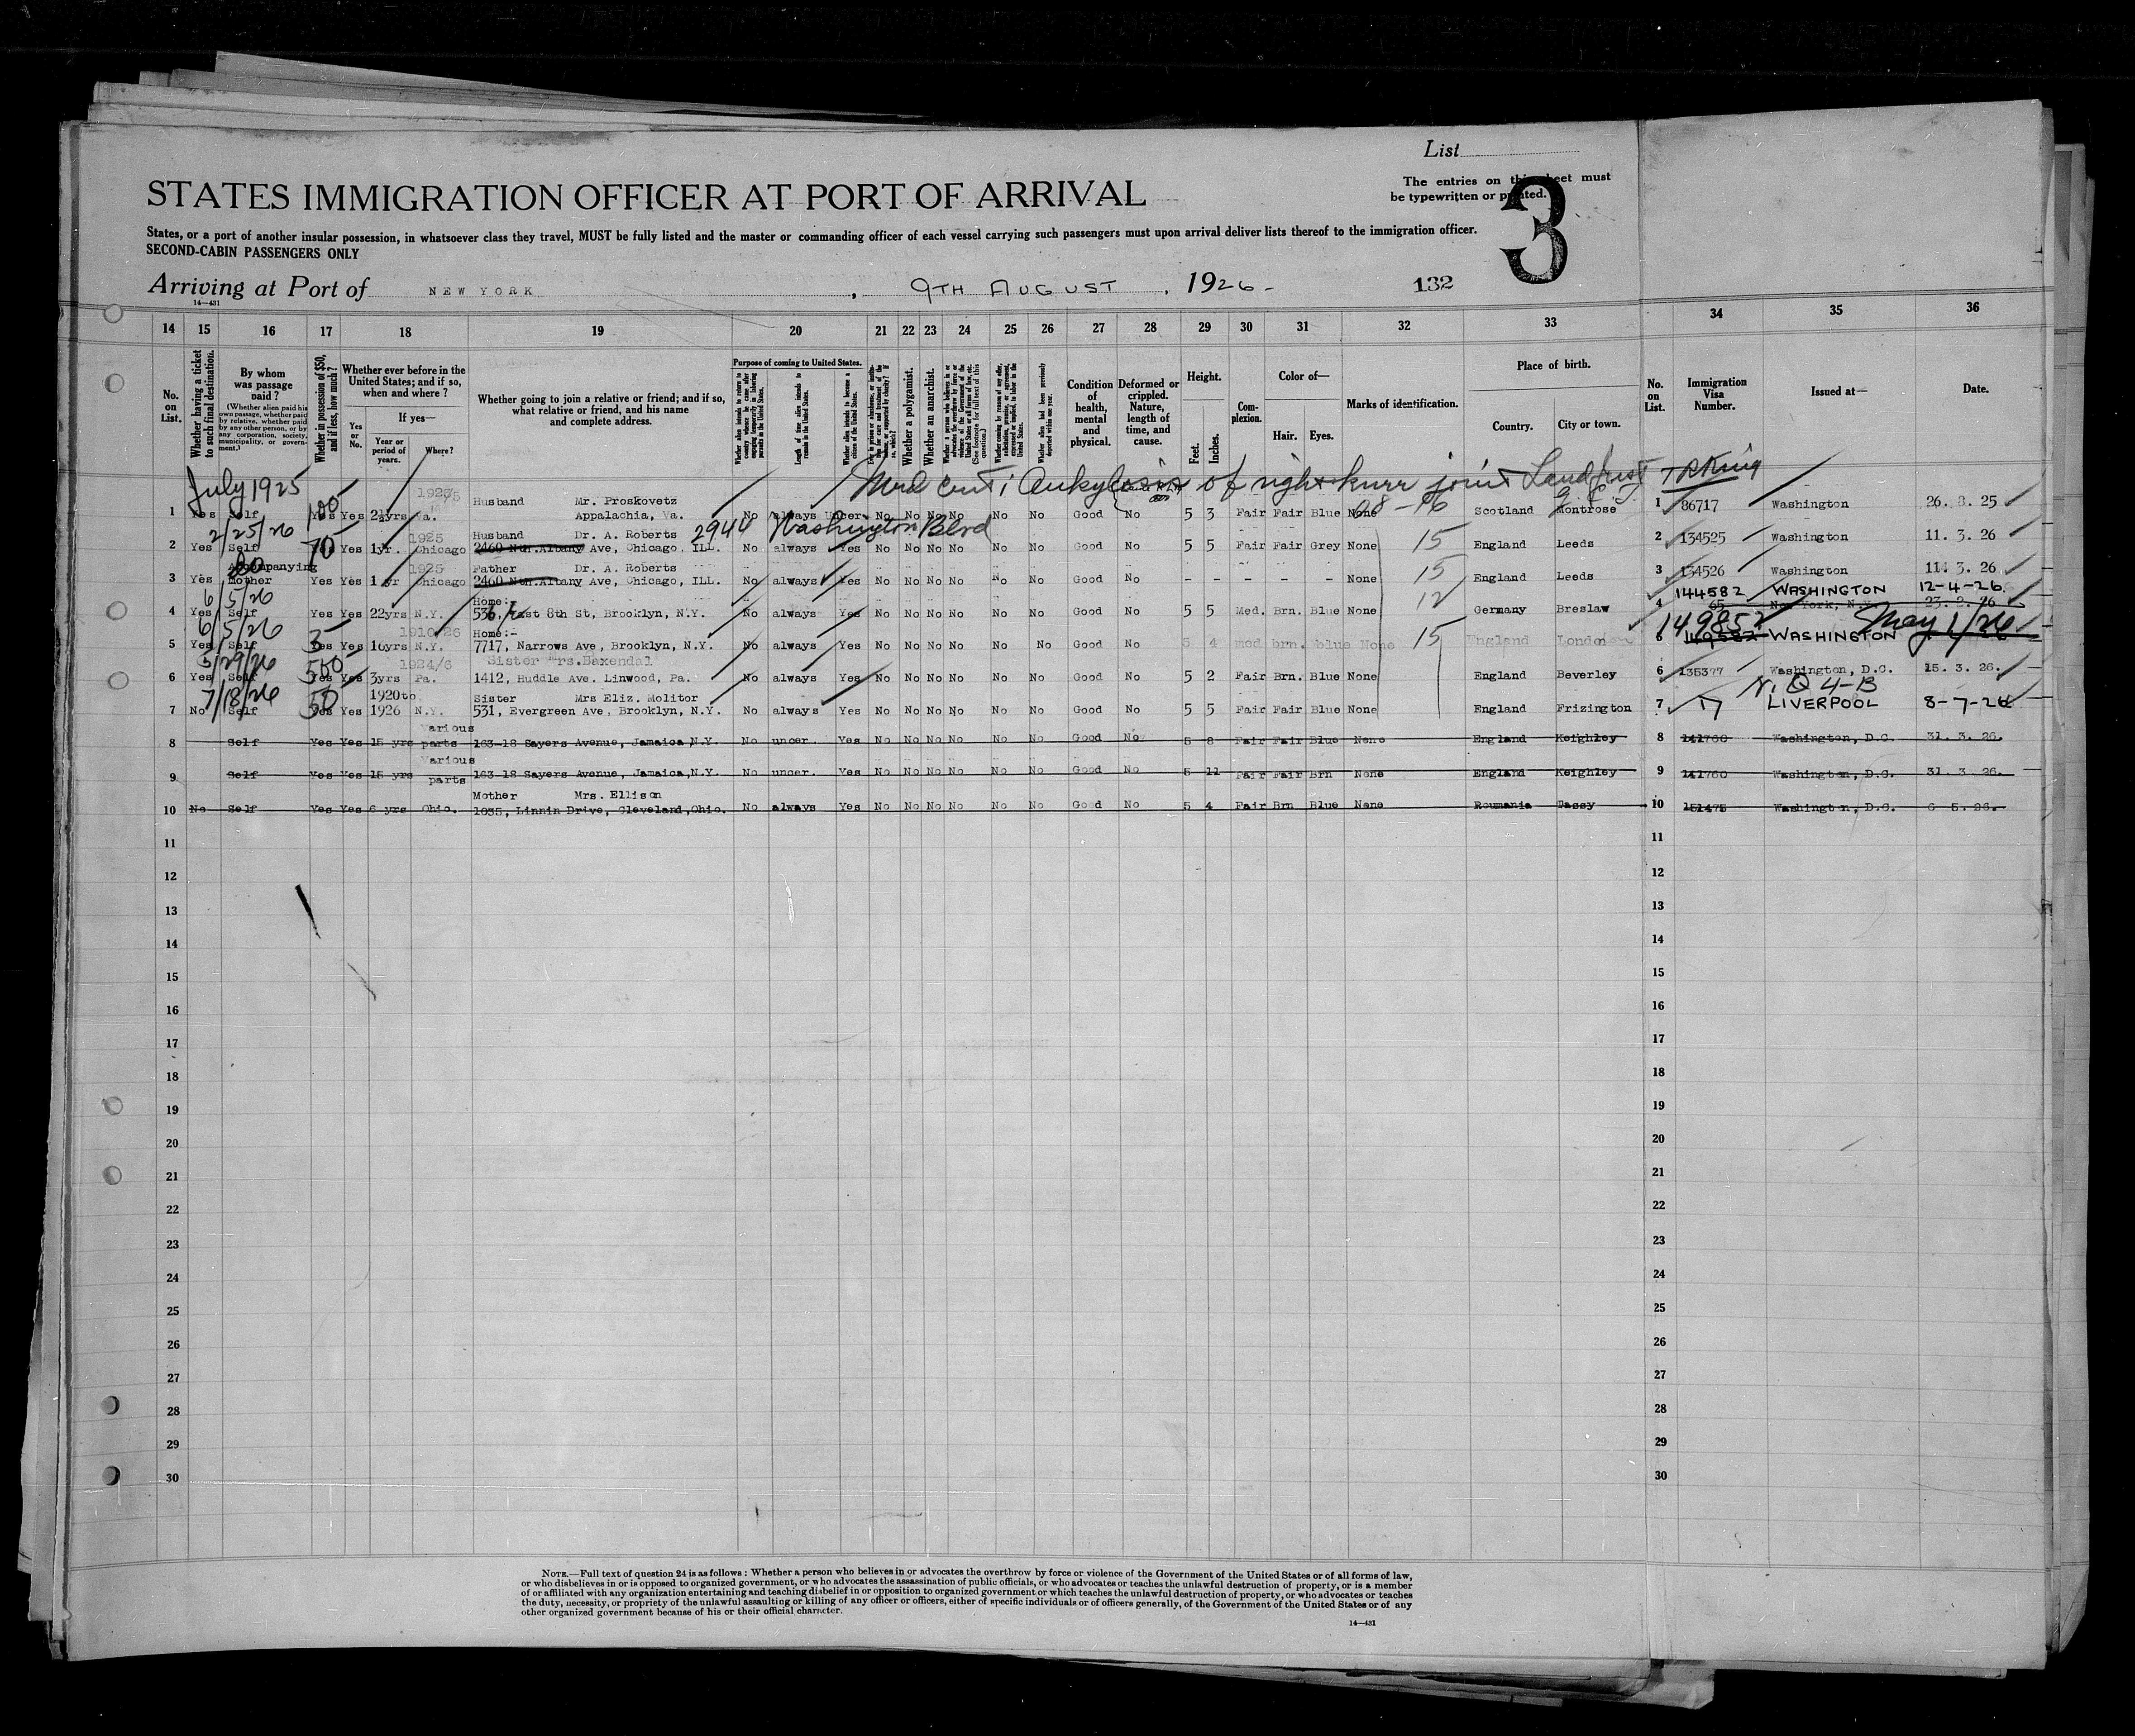 List
The entries on this sheet must
be typewritten or printed.
3
STATES IMMIGRATION OFFICER AT PORT OF ARRIVAL
States, or a port of another insular possession, in whatsoever class they travel, MUST be fully listed and the master or commanding officer of each vessel carrying such passengers must upon arrival deliver lists thereof to the immigration officer.
SECOND-CABIN PASSENGERS ONLY
Arriving at Port of NEW YORK, 9TH AUGUST, 1926- 132
14—431
14 15 16 17 18 19 20 21 22 23 24 25 26 27 28 29 30 31 32 33 34 35 36
No. on List.
Whether having a ticket to such final destination.
By whom was passage paid?
(Whether alien paid his own passage, whether paid by relative, whether paid by any other person, or by any corporation, society, municipality, or government.)
Whether in possession of $50, and if less, how much?
Whether ever before in the United States; and if so, when and where?
Yes or No.
If yes—
Year or period of years.
Where?
Whether going to join a relative or friend; and if so, what relative or friend, and his name and complete address.
Purpose of coming to United States.
Length of time alien intends to remain in the United States.
Whether alien intends to become a citizen of the United States.
Whether a polygamist.
Whether an anarchist.
Condition of health, mental and physical.
Deformed or crippled. Nature, length of time, and cause.
Height.
Feet.
Inches.
Complexion.
Color of—
Hair.
Eyes.
Marks of identification.
Place of birth.
Country.
City or town.
No. on List.
Immigration Visa Number.
Issued at—
Date.
July 1925
Med cert; Ankylosis of right knee joint
Husband Mr. Proskovetz
1 Yes Self 100 Yes Yes 2½yrs Va. Appalachia, Va. No always Uncer. No No No No No No Good No 5 3 Fair Fair Blue None Scotland Montrose 1 86717 Washington 26. 8. 25
2/25/26 1925 Husband Dr. A. Roberts 2944 Washington Blvd
2 Yes Self 70 Yes 1yr. Chicago 2460 Nth.Albany Ave, Chicago, ILL. No always Yes No No No No No No Good No 5 5 Fair Fair Grey None 15 England Leeds 2 134525 Washington 11. 3. 26
Accompanying 1925 Father Dr. A. Roberts
3 Yes Mother Yes Yes 1 yr Chicago 2460 Nth.Albany Ave, Chicago, ILL. No always Yes No No No No No No Good No - - - - - None 15 England Leeds 3 134526 Washington 114 3. 26
6/5/26 Home:- 144582 WASHINGTON 12-4-26
4 Yes Self Yes Yes 22yrs N.Y. 536, East 8th St, Brooklyn, N.Y. No always Yes No No No No No No Good No 5 5 Med. Brn. Blue None 12 Germany Breslaw 4 65 New York, N.Y.
6/5/26 1910/26 Home:- 149852 May 1/26
5 Yes Self Yes Yes 16yrs N.Y. 7717, Narrows Ave, Brooklyn, N.Y. No always Yes No No No No No No Good No 5 4 med brn. blue None 15 England London 5 149582 WASHINGTON
5/29/26 500 1924/6 Sister Mrs.Baxendal
6 Yes Self Yes Yes 3yrs Pa. 1412, Huddle Ave. Linwood, Pa. No always Yes No No No No No No Good No 5 2 Fair Brn. Blue None England Beverley 6 135377 Washington, D.C. 15. 3. 26.
7/18/26 50 1920to Sister Mrs Eliz. Molitor N.Q 4-B
7 No Self Yes Yes 1926 N.Y. 531, Evergreen Ave, Brooklyn, N.Y. No always Yes No No No No No No Good No 5 5 Fair Fair Blue None England Frizington 7 17 LIVERPOOL 8-7-26
Various
8 Self Yes Yes 15 yrs parts 163-18 Sayers Avenue, Jamaica,N.Y. No uncer. Yes No No No No No No Good No 5 8 Fair Fair Blue None England Keighley 8 141760 Washington, D.C 31. 3. 26.
Various
9 Self Yes Yes 15 yrs parts 163-18 Sayers Avenue, Jamaica,N.Y. No uncer. Yes No No No No No No Good No 5 11 Fair Fair Brn None England Keighley 9 141760 Washington, D.C. 31. 3. 26.
Mother Mrs. Ellison
10 No Self Yes Yes 6 yrs Ohio. 1035, Linnin Drive, Cleveland,Ohio. No always Yes No No No No No No Good No 5 4 Fair Brn Blue None Roumania Dassy 10 151475 Washington, D.C. 6 5. 26.
11 11
12 12
13 13
14 14
15 15
16 16
17 17
18 18
19 19
20 20
21 21
22 22
23 23
24 24
25 25
26 26
27 27
28 28
29 29
30 30
NOTE.—Full text of question 24 is as follows: Whether a person who believes in or advocates the overthrow by force or violence of the Government of the United States or of all forms of law,
or who disbelieves in or is opposed to organized government, or who advocates the assassination of public officials, or who advocates or teaches the unlawful destruction of property, or is a member
of or affiliated with any organization entertaining and teaching disbelief in or opposition to organized government or which teaches the unlawful destruction of property, or who advocates or teaches
the duty, necessity, or propriety of the unlawful assaulting or killing of any officer or officers, either of specific individuals or of officers generally, of the Government of the United States or of any
other organized government because of his or their official character.
14—431